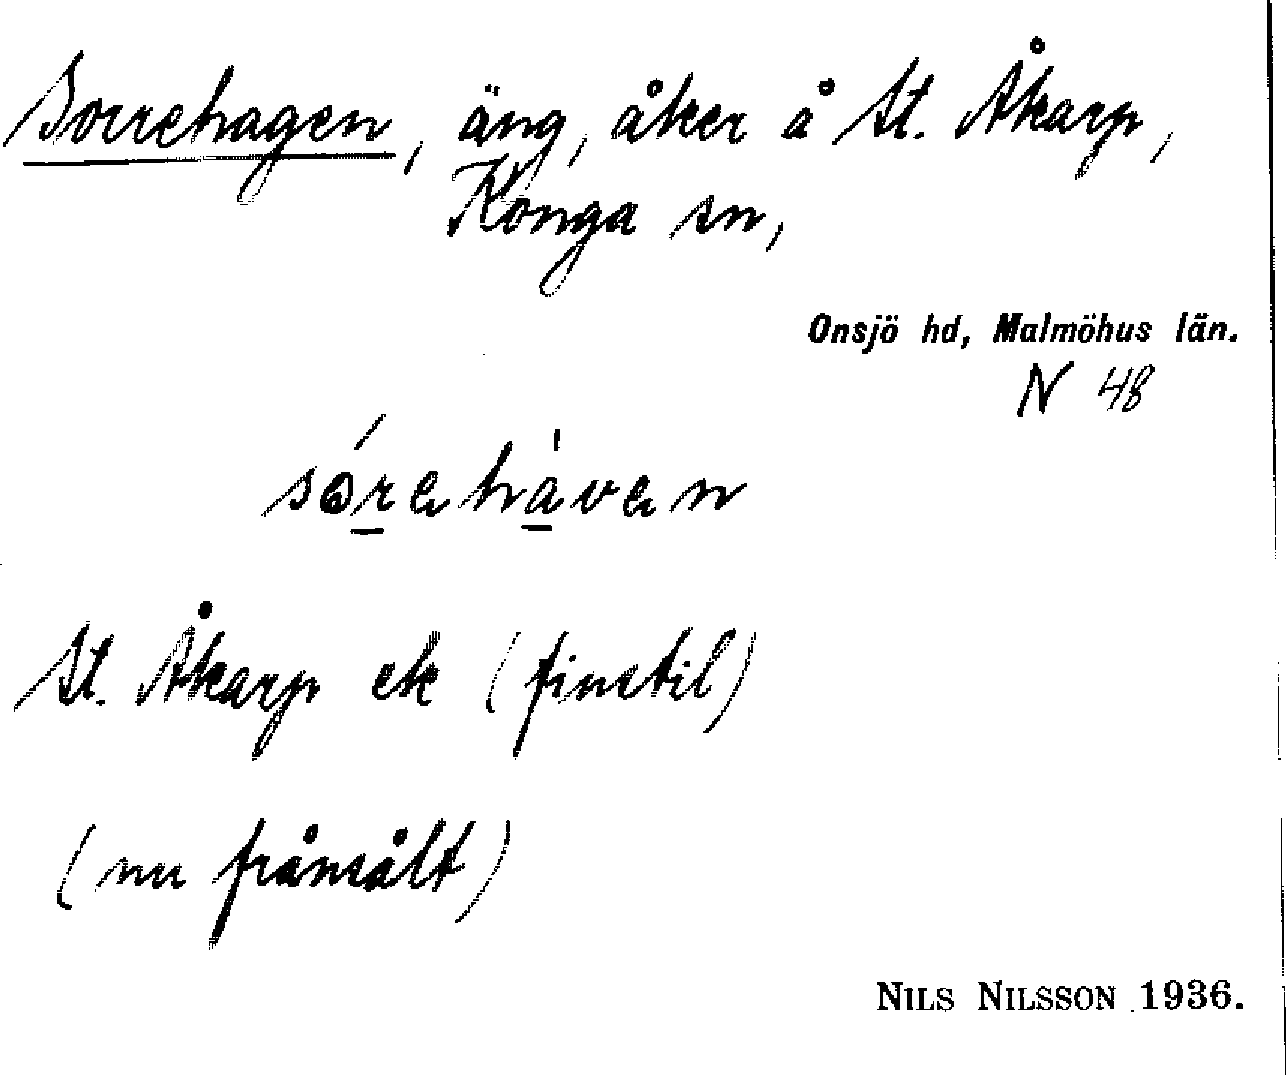 Sorrehagen, äng, åker å St. Åkarp,
Konga sn,
Onsjö hd, Malmöhus län.
N 48
sórehàven
St. Åkarp ek (finstil)
(nu frånsålt)
NILS NILSSON 1936.